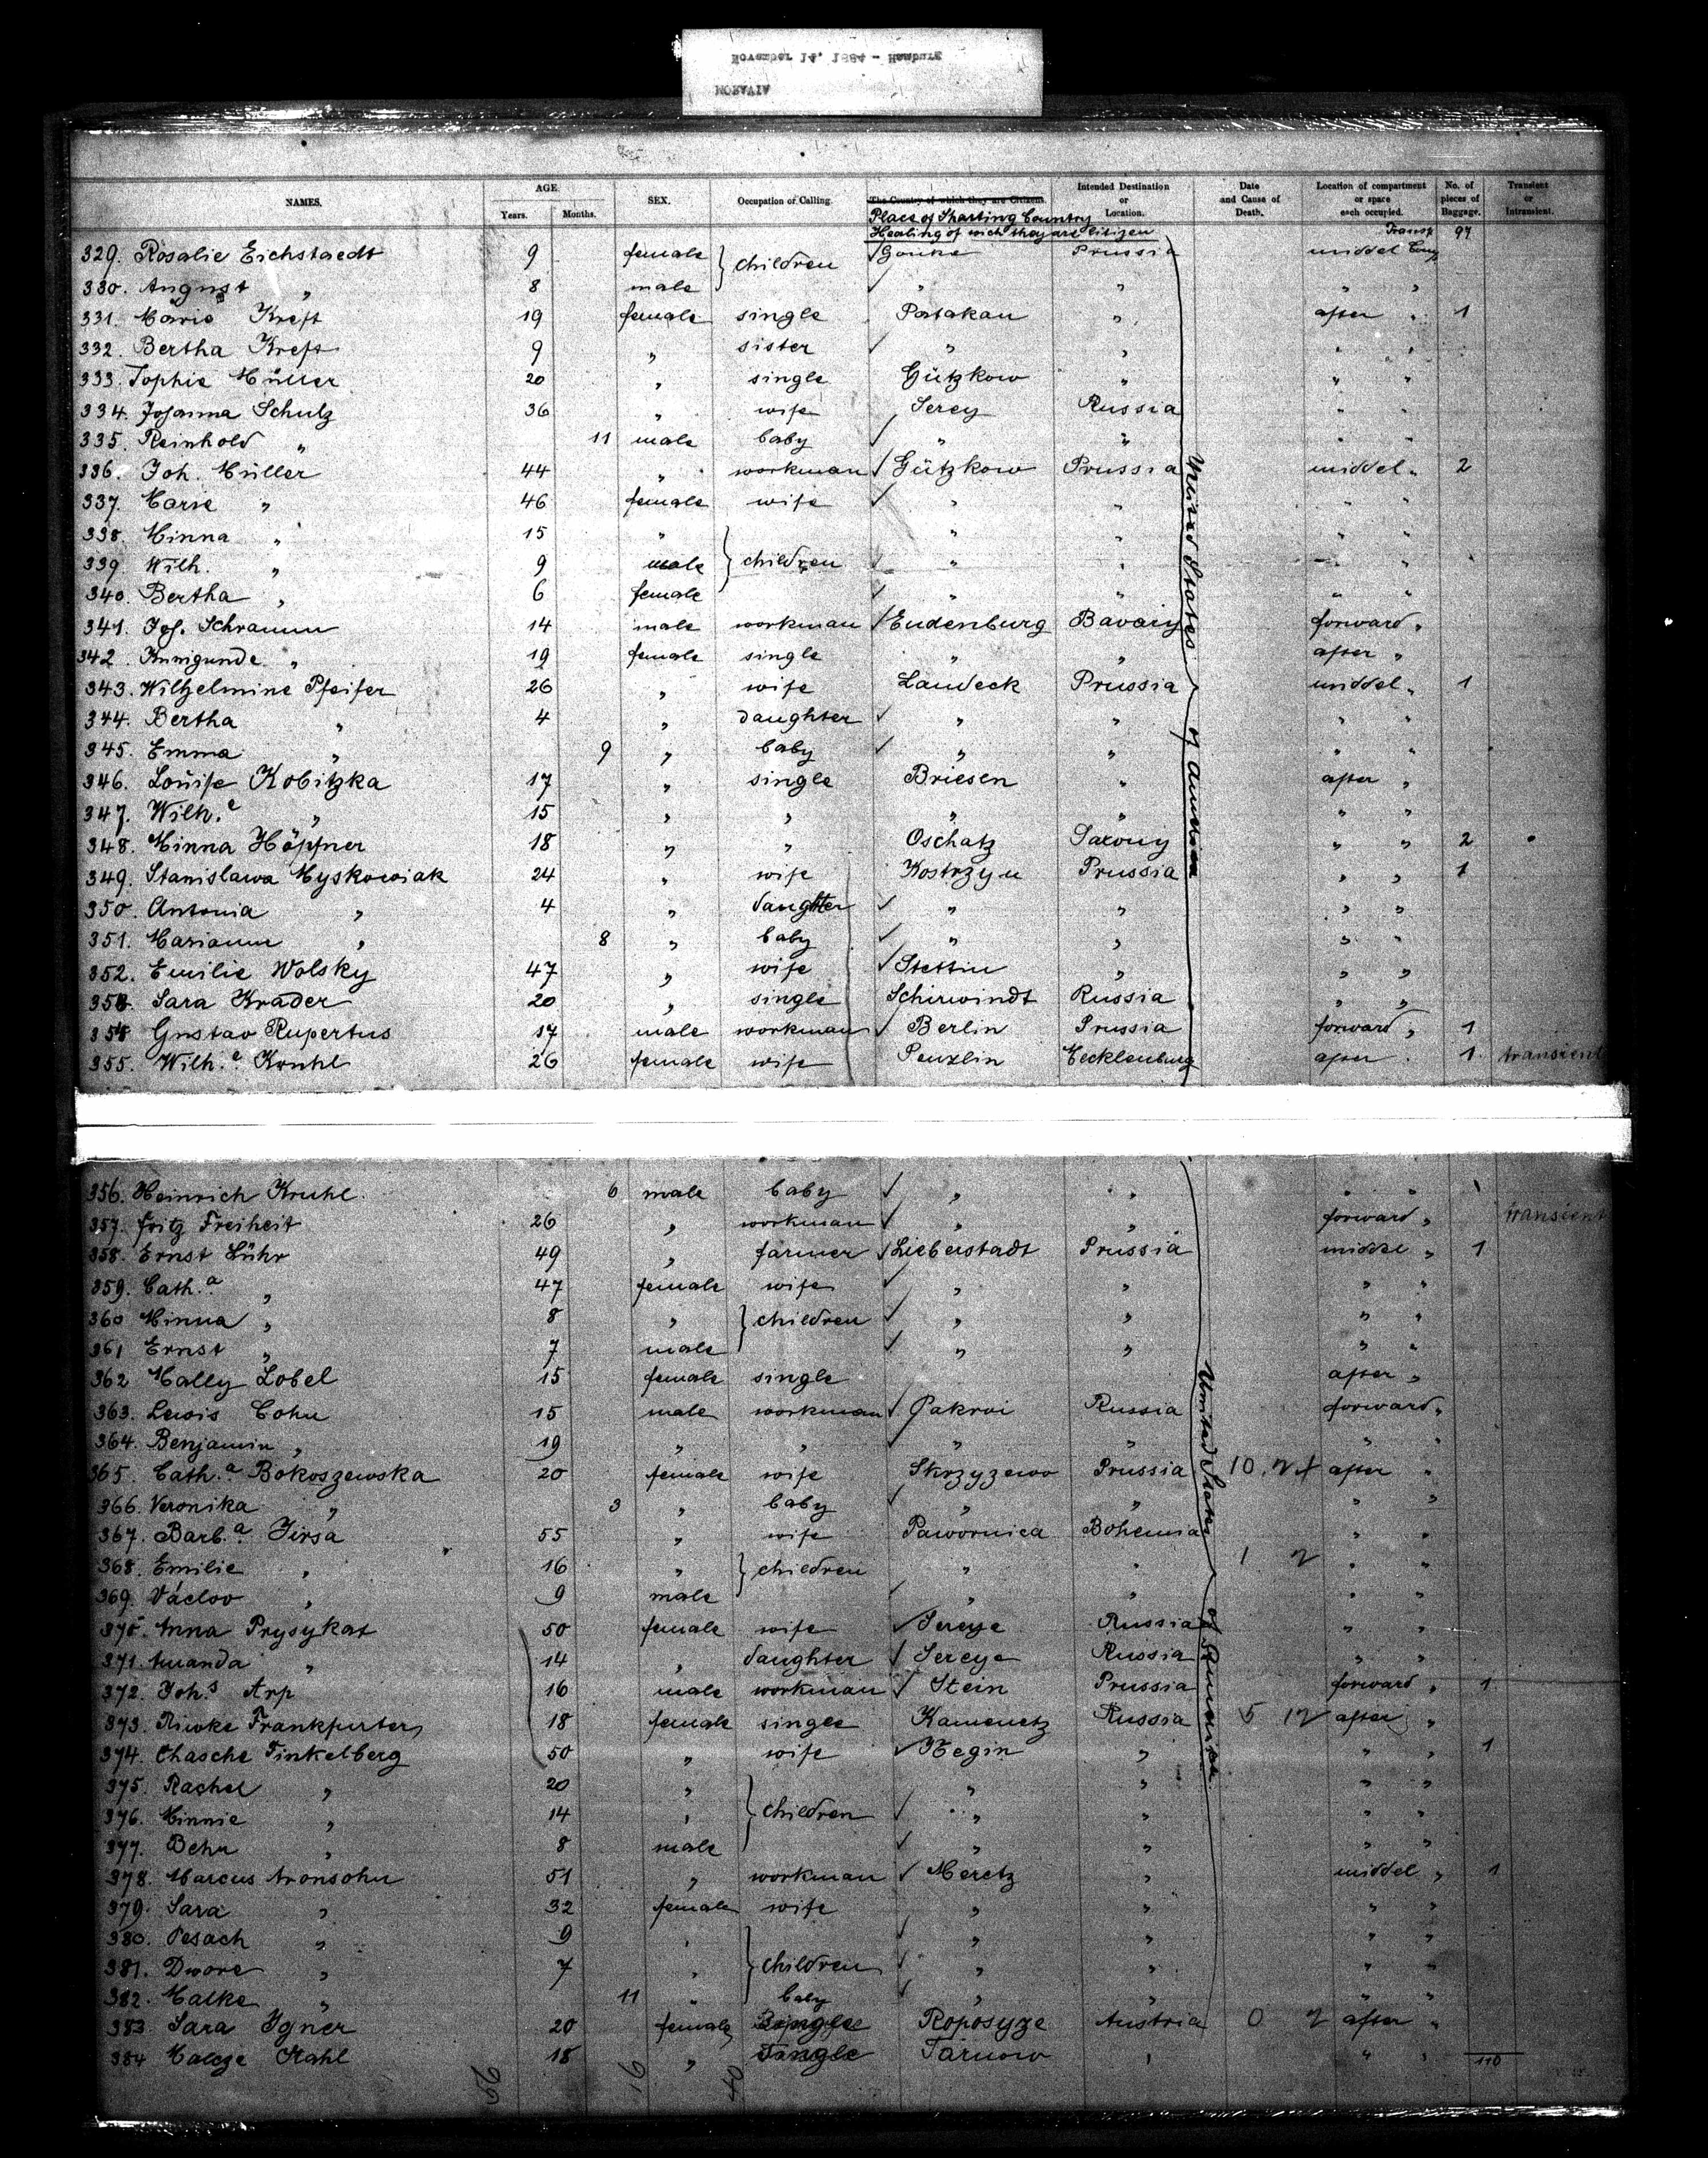 MORAVIA
November 14, 1884 - Hamburg
NAMES. AGE. Years. Months. SEX. Occupation or Calling. The Country of which they are Citizens. Intended Destination or Location. Date and Cause of Death. Location of compartment or space each occupied. No. of pieces of Baggage. Transient or Intransient.
Place of Starting Country
Healing of wich they are Citizen 97
329. Rosalie Eichstaedt 9 female children Prussia middel
330. August „ 8 male „ „ „ „
331. Marie Kreft 19 female single Patakau „ after „ 1
332. Bertha Kreft 9 „ sister „ „ „ „
333. Sophie Müller 20 „ single Gützkow „ „ „
334. Johanna Schulz 36 „ wife Serey Russia „ „
335. Reinhold „ 11 male baby „ „ „ „
336. Joh. Müller 44 „ workman Gützkow Prussia middel „ 2
337. Marie „ 46 female wife „ „ „ „
338. Minna „ 15 „ „ „ „ „
339. Wilh. „ 9 male children „ „ „ „
340. Bertha „ 6 female „ „ „ „
341. Jos. Schramm 14 male workman Eudenburg Bavaiy forward „
342. Kunigunde „ 19 female single „ „ after „
343. Wilhelmine Pfeifer 26 „ wife Landeck Prussia middel „ 1
344. Bertha „ 4 „ daughter „ „ „ „
345. Emma „ 9 „ baby „ „ „ „
346. Louise Kobitzka 17 „ single Briesen „ after „
347. Wilh.e „ 15 „ „ „ „ „ „
348. Minna Höpfner 18 „ „ Oschatz Saxony „ „ 2
349. Stanislawa Myskowiak 24 „ wife Kostrzyn Prussia „ „ 1
350. Antonia „ 4 „ daughter „ „ „ „
351. Mariann „ 8 „ baby „ „ „ „
352. Emilie Wolsky 47 „ wife Stettin „ „ „
353. Sara Krader 20 „ single Schirwindt Russia „ „
354. Gustav Rupertus 17 male workman Berlin Prussia forward „ 1
355. Wilh.e Kruhl 26 female wife Penzlin Mecklenburg after „ 1 transient
United States of America
356. Heinrich Kruhl. 6 male baby „ „ „ „
357. Fritz Freiheit 26 „ workman „ „ forward „ transient
358. Ernst Lühr 49 „ farmer Lieberstadt Prussia middel „ 1
359. Cath.a „ 47 female wife „ „ „ „
360 Minna „ 8 „ children „ „ „ „
361 Ernst „ 7 male „ „ „ „
362 Mally Lobel 15 female single after „
363. Lewis Cohn 15 male workman Pakroi Russia forward „
364. Benjamin „ 19 „ „ „ „ „ „
365. Cath.a Bokoszewska 20 female wife Skrzyzewo Prussia 10. after „
366. Veronika „ 3 „ baby „ „ „ „
367. Barb.a Jirsa 55 „ wife Pawornica Bohemia „ „
368. Emilie „ 16 „ children „ „ 1 „ „
369. Václav „ 9 male „ „ „ „
370. Anna Prysykat 50 female wife Sereye Russia „ „
371. Amanda „ 14 „ daughter Sereye Russia „ „
372. Joh.s Arp 16 male workman Stein Prussia forward „ 1
373. Riwke Frankfurter 18 female single Kamenetz Russia 5 after „
374. Chasche Finkelberg 50 „ wife Negin „ „ „ 1
375. Rachel „ 20 „ „ „ „ „
376. Minnie „ 14 „ children „ „ „ „
377. Behr „ 8 male „ „ „ „
378. Marcus Aronsohn 51 „ workman Meretz „ middel „ 1
379. Sara „ 32 female wife „ „ „ „
380. Pesach „ 9 „ „ „ „ „
381. Dwore „ 7 „ children „ „ „ „
382. Malke „ 11 „ baby „ „ „ „
383. Sara Igner 20 female single Roposyze Austria 0 after „
384 Malcze Stahl 18 „ single Tarnow „ „ „ 110
United States of America
16 40